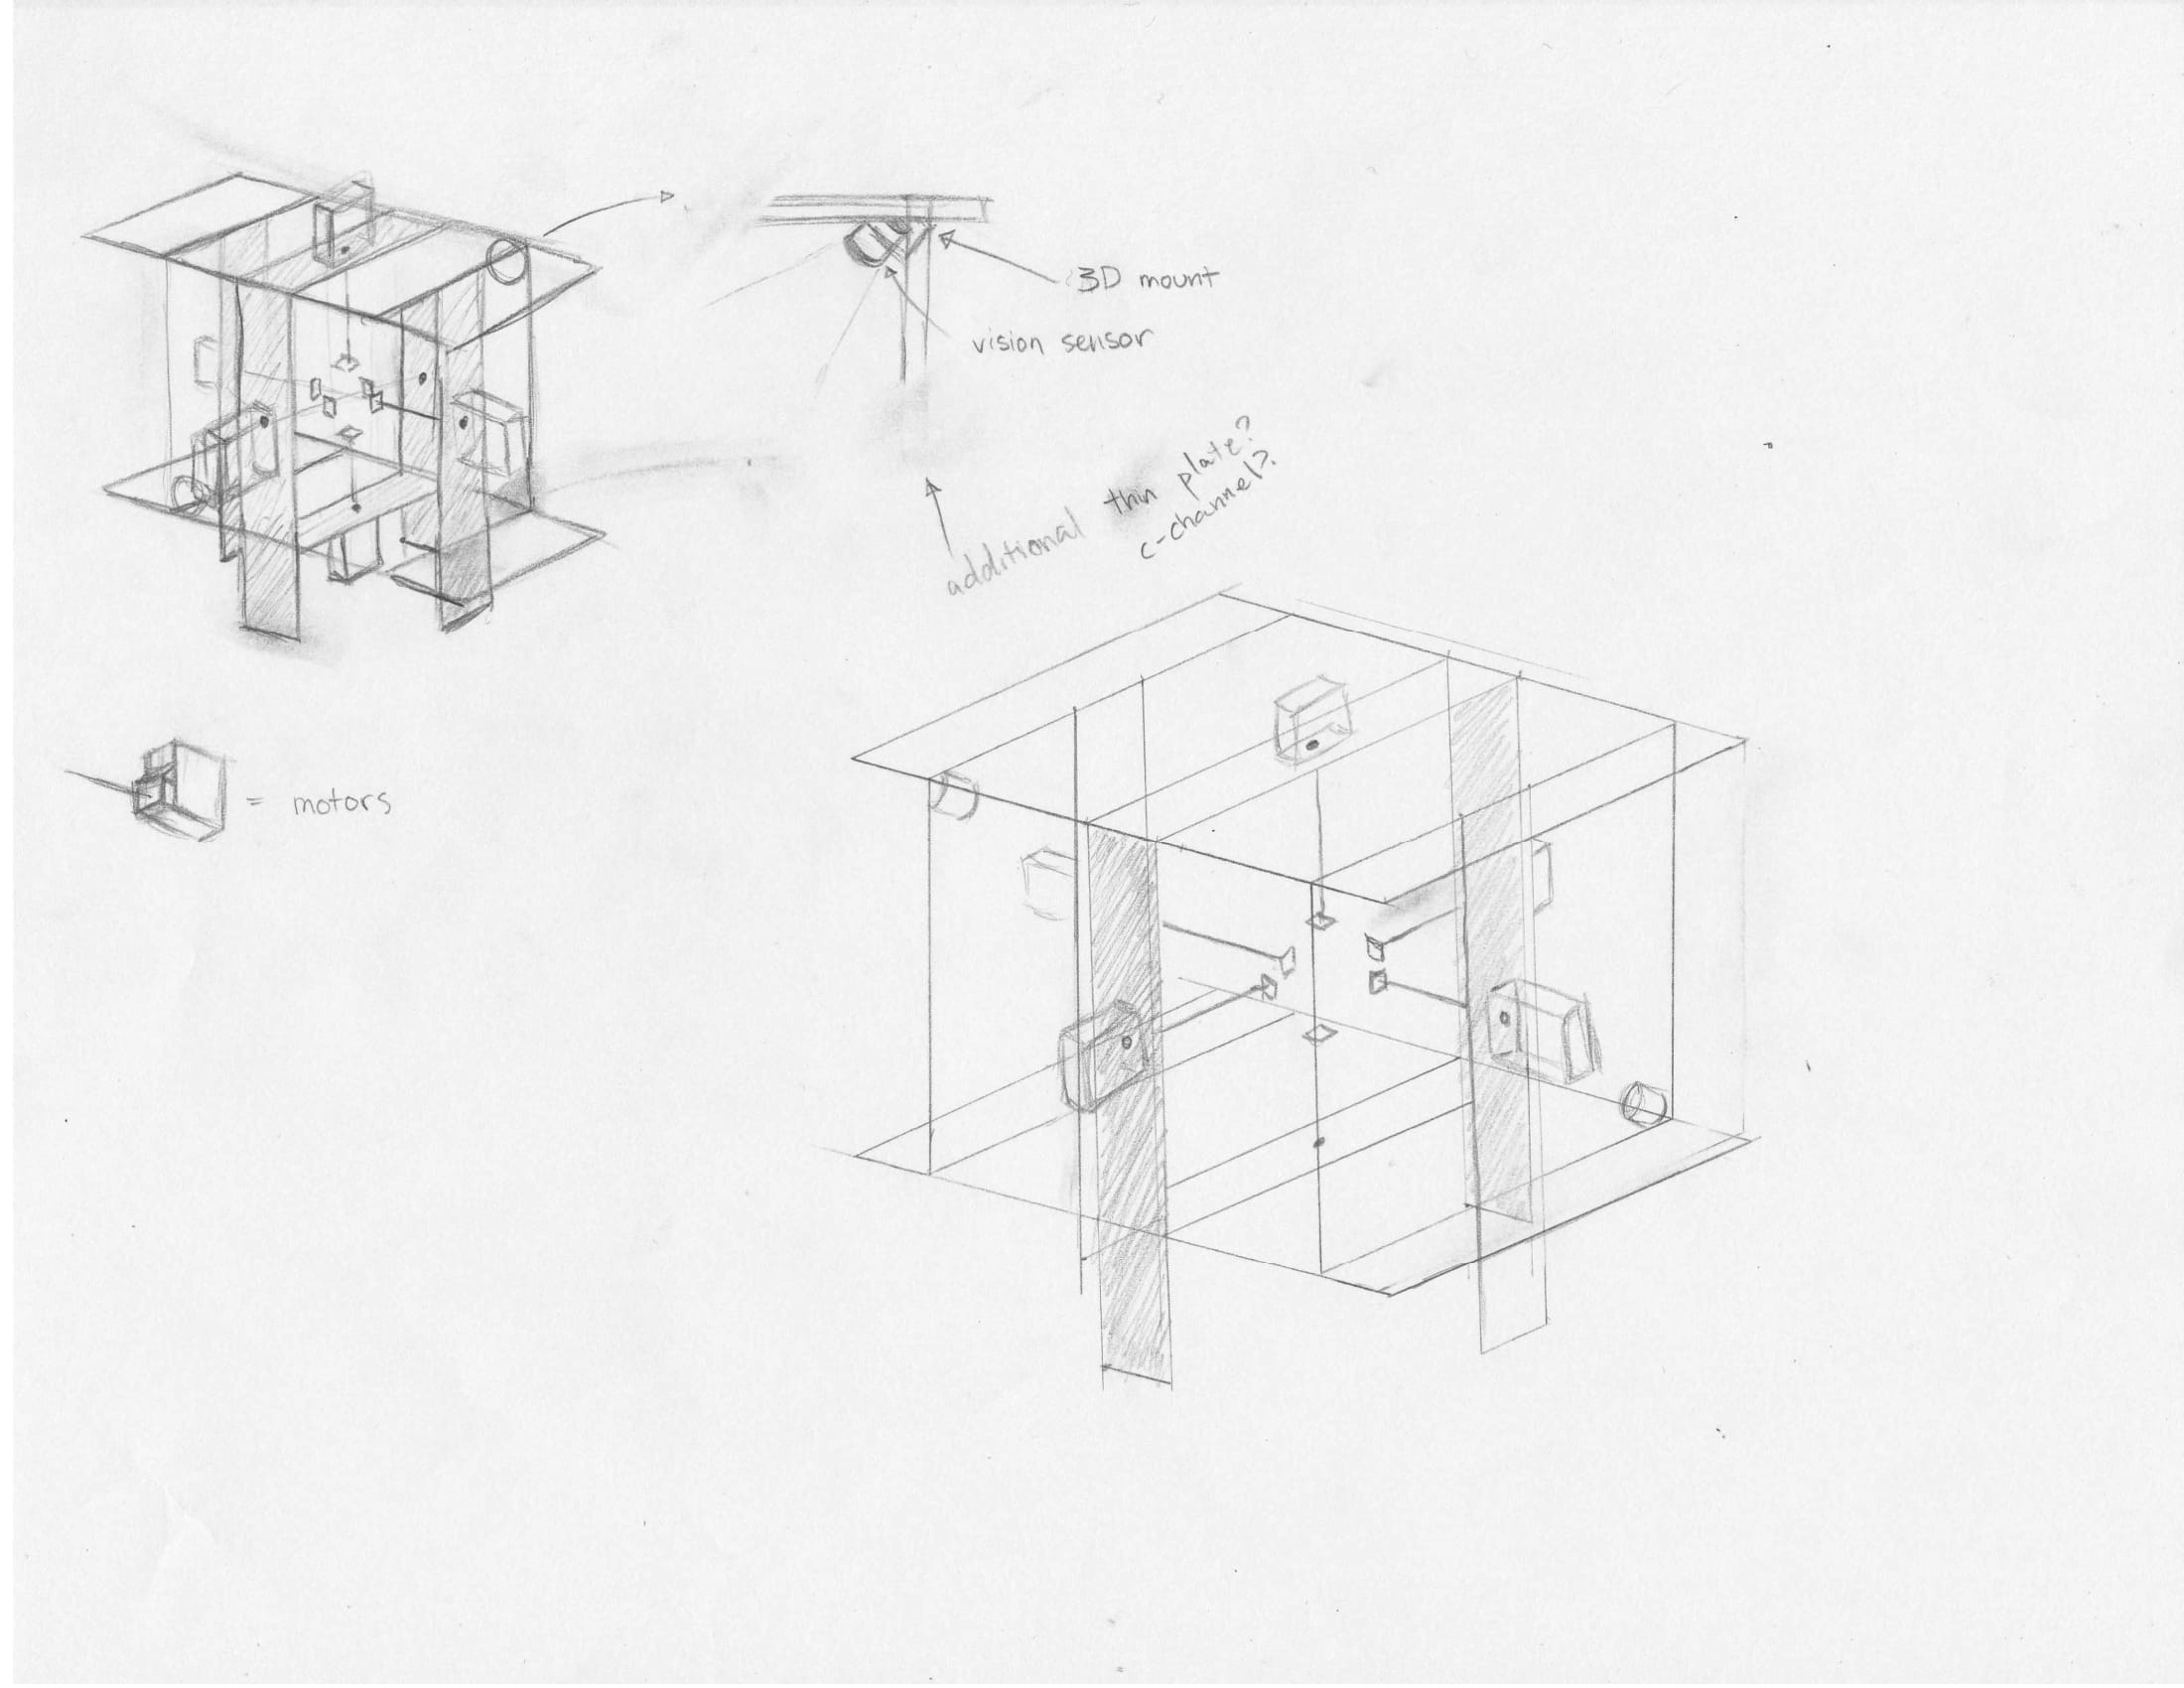 3D mount
vision sensor
additional thin plate?
c-channel?
= motors